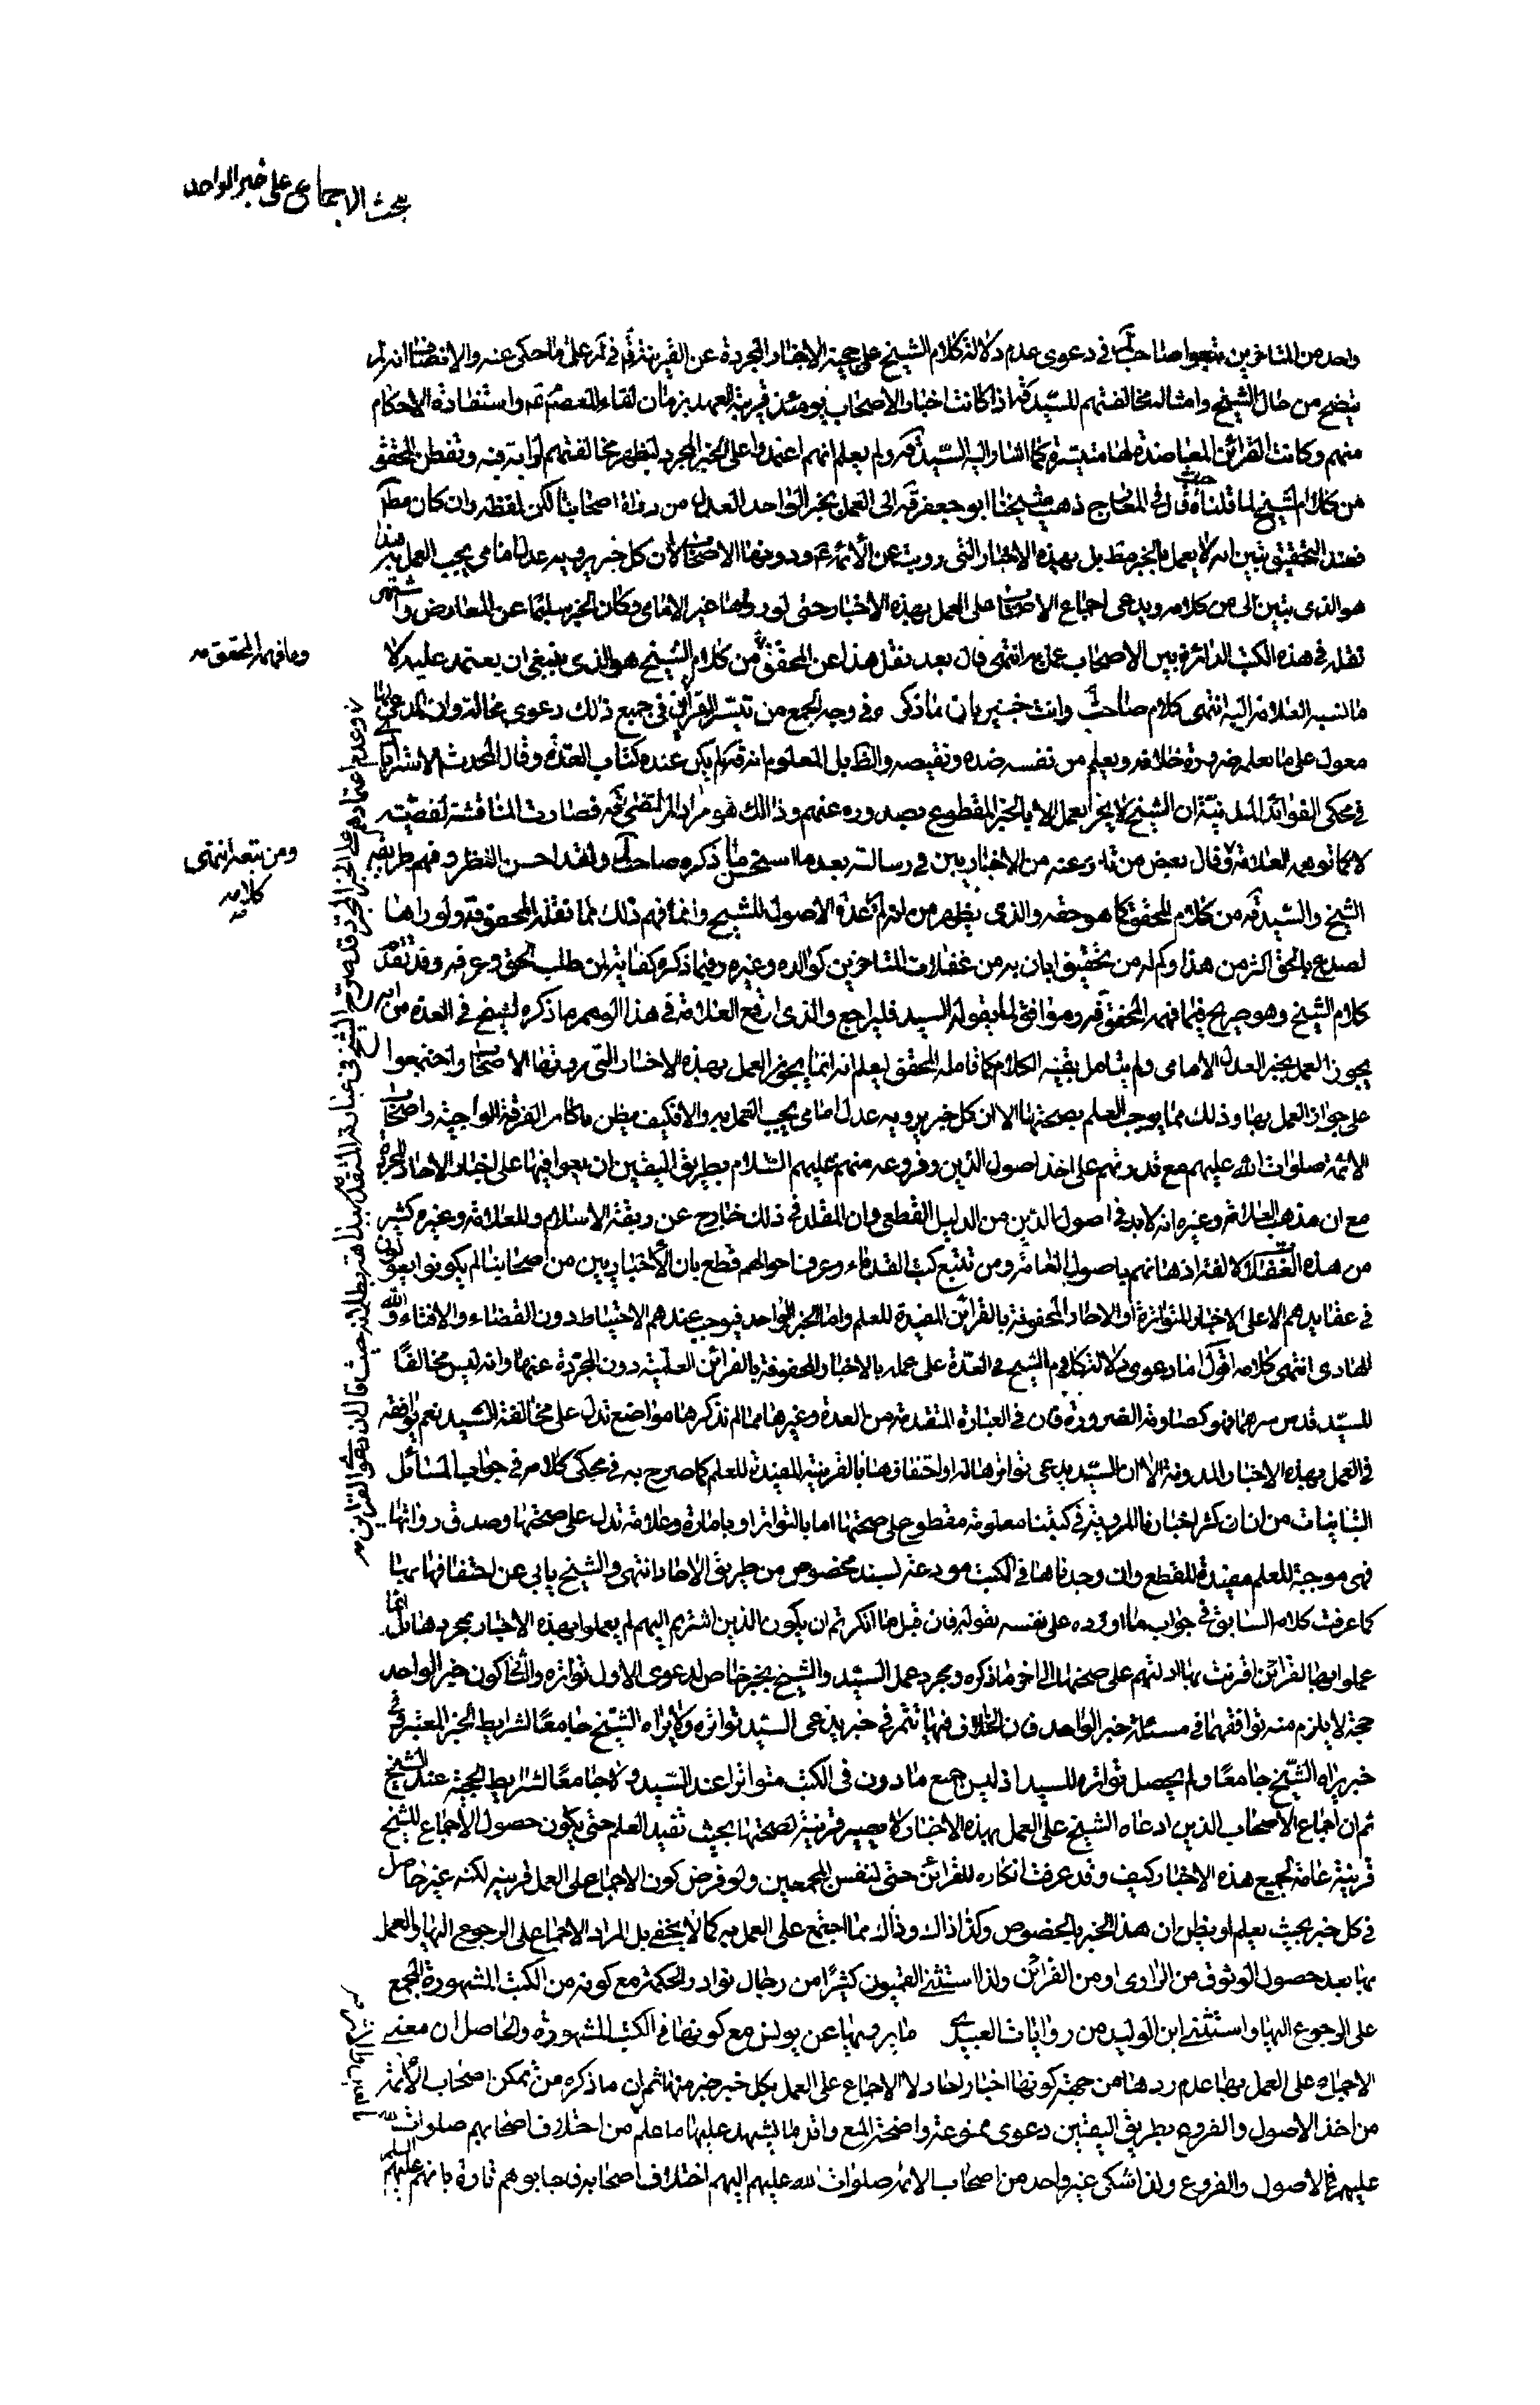 بحث الاجماع على خبر الواحد
واحد من المتاخرين تبعوا صاحب لم في دعوى عدم دلالة كلام الشيخ على حجية الاخبار المجردة عن القرينة قال في لم على ما حكى عنه والانصاف انه لم
يتضح من حال الشيخ وامثاله مخالفتهم للسيد قده اذ كانت اخبار الاصحاب يومئذ قريبة العهد بزمان لقاء المعصوم ع واستفادة الاحكام
منهم وكانت القرائن المعاضدة لها متيسرة كما اشار اليه السيد قده ولم يعلم انهم اعتمدوا على الخبر المجرد ليظهر مخالفتهم لرايه فيه وتفطن المحقق
من كلام الشيخ لما قلناه حيث قال في المعارج ذهب شيخنا ابو جعفر قده الى العمل بخبر الواحد العدل من رواة اصحابنا لكن لفظه وان كان مطلقا
فعند التحقيق يتبين انه لا يعمل بالخبر مطلقا بل بهذه الاخبار التي رويت عن الائمة ع ودونها الاصحاب لا ان كل خبر يرويه عدل امامي يجب العمل به هذا
هو الذي يتبين لي من كلامه ويدعى اجماع الاصحاب على العمل بهذه الاخبار حتى لو رواها غير الامامي وكان الخبر سليما عن المعارض واشتهر
نقله في هذه الكتب الدائرة بين الاصحاب عمل به انتهى قال بعد نقل هذا عن المحقق وما فهمه المحقق من كلام الشيخ هو الذي ينبغي ان يعتمد عليه لا
ما نسبه العلامة اليه انتهى كلام صاحب لم وانت خبير بان ما ذكره في وجه الجمع من تيسر القرائن وعدم اعتمادهم على الخبر المجرد قد صرح الشيخ في عبارته المتقدمة ببداهة بطلانه حيث قال ان دعوى القرائن في جميع ذلك دعوى محالة وان المدعي لها
معول على ما يعلم ضرورة خلافه ويعلم من نفسه ضده ونقيضه والظ بل المعلوم انه قده لم يكن عنده كتاب العدة وقال المحدث الاسترابادي
في محكي الفوائد المدنية ان الشيخ لا يجيز العمل الا بالخبر المقطوع بصدوره عنهم وذلك هو مراد المرتضى قده فصارت المناقشة لفظية
لا كما توهمه العلامة ومن تبعه انتهى كلامه وقال بعض من تاخر عنه من الاخباريين في رسالته بعد ما استحسن ما ذكره صاحب لم ولقد احسن النظر وفهم طريقة
الشيخ والسيد قده من كلام المحقق كما هو حقه والذي يظهر منه انه لم ير عدة الاصول للشيخ وانما فهم ذلك مما نقله المحقق قده ولو راها
لصدع بالحق اكثر من هذا وكم له من تحقيق ابان به من غفلات المتاخرين كوالده وغيره وفيما ذكره كفاية لمن طلب الحق وعرفه وقد تقدم
كلام الشيخ وهو صريح فيما فهمه المحقق قده وموافق لما يقوله السيد فليراجع والذي اوقع العلامة في هذا الوهم ما ذكره الشيخ في العدة من انه
يجوز العمل بخبر العدل الامامي ولم يتامل بقية الكلام كما تامله المحقق ليعلم انه انما يجوز العمل بهذه الاخبار التي يروونها الاصحاب واجتمعوا
على جواز العمل بها وذلك مما يوجب العلم بصحتها لا ان كل خبر يرويه عدل امامي يجب العمل به والا فكيف يظن باكابر الفرقة الناجية واصحاب
الائمة صلوات الله عليهم مع قدرتهم على اخذ اصول الدين وفروعه منهم عليهم السلام بطريق اليقين ان يعولوا فيها على اخبار الاحاد المجردة
مع ان مذهب العلامة وغيره انه لا بد في اصول الدين من الدليل القطعي وان المقلد في ذلك خارج عن ربقة الاسلام وللعلامة وغيره كثير
من هذه الغفلات لالفة اذهانهم باصول العامة ومن تتبع كتب القدماء وعرف احوالهم قطع بان الاخباريين من اصحابنا لم يكونوا يعولون
في عقايدهم الا على الاخبار المتواترة او الاحاد المحفوفة بالقرائن المفيدة للعلم واما الخبر الواحد فيوجب عندهم الاحتياط دون القضاء والافتاء والله
الهادي انتهى كلامه اقول اما دعوى دلالة كلام الشيخ في العدة على عمله بالاخبار المحفوفة بالقرائن العلمية دون المجردة عنها وانه ليس مخالفا
للسيد قدس سرهما فهو كمصادمة الضرورة فان في العبارة المتقدمة من العدة وغيرها مما لم نذكرها مواضع تدل على مخالفة السيد نعم يوافقه
في العمل بهذه الاخبار المدونة الا ان السيد يدعى تواترها له او احتفافها بالقرينة المفيدة للعلم كما صرح به في محكي كلامه في جواب المسائل
التبانيات من ان اكثر اخبارنا المروية في كتبنا معلومة مقطوع على صحتها اما بالتواتر او بامارة وعلامة تدل على صحتها وصدق رواتها
فهي موجبة للعلم مفيدة للقطع وان وجدناها في الكتب مودعة بسند مخصوص من طريق الاحاد انتهى والشيخ يابى عن احتفافها بها
كما عرفت كلامه السابق في جواب ما اورده على نفسه بقوله فان قيل ما انكرتم ان يكون الذين اشرتم اليهم لم يعملوا بهذه الاخبار بمجردها بل انما
عملوا بها لقرائن اقترنت بها دلتهم على صحتها الى اخر ما ذكره ومجرد عمل السيد والشيخ بخبر خاص لدعوى الاول تواتره والثاني كون خبر الواحد
حجة لا يلزم منه توافقهما في مسئلة خبر الواحد فان الخلاف فيها يثمر في خبر يدعى السيد تواتره ولا يراه الشيخ جامعا لشرايط الخبر المعتبر وفي
خبر يراه الشيخ جامعا ولم يحصل تواتره للسيد اذ ليس جميع ما دون في الكتب متواترا عند السيد ولا جامعا لشرايط الحجية عند الشيخ
ثم ان اجماع الاصحاب الذي ادعاه الشيخ على العمل بهذه الاخبار لا يصير قرينة لصحتها بحيث تفيد العلم حتى يكون حصول الاجماع للشيخ
قرينة عامة لجميع هذه الاخبار كيف وقد عرفت انكاره للقرائن حتى لنفس المجمعين ولو فرض كون الاجماع على العمل قرينة لكنه غير حاصل
في كل خبر بحيث يعلم او يظن ان هذا الخبر بالخصوص وكذا ذاك وذاك مما اجتمع على العمل به كما لا يخفى بل المراد الاجماع على الرجوع اليها والعمل
بها بعد حصول الوثوق من الراوي او من القرائن ولذا استثنى القميون كثيرا من رجال نوادر الحكمة مع كونه من الكتب المشهورة المجمع
على الرجوع اليها واستثنى ابن الوليد من روايات العبيدي ما يرويها عن يونس مع كونها في الكتب المشهورة والحاصل ان معنى
الاجماع على العمل بها عدم ردها من جهة كونها اخبار احاد لا الاجماع على العمل بكل خبر خبر منها ثم ان ما ذكره من تمكن اصحاب الائمة
من اخذ الاصول والفروع بطريق اليقين دعوى ممنوعة واضحة المنع واقل ما يشهد عليها ما علم من اختلاف اصحابهم صلوات الله
عليهم في الاصول والفروع ولذا شكى غير واحد من اصحاب الائمة صلوات الله عليهم اليهم اختلاف اصحابه فاجابوهم تارة بانهم عليهم السلم